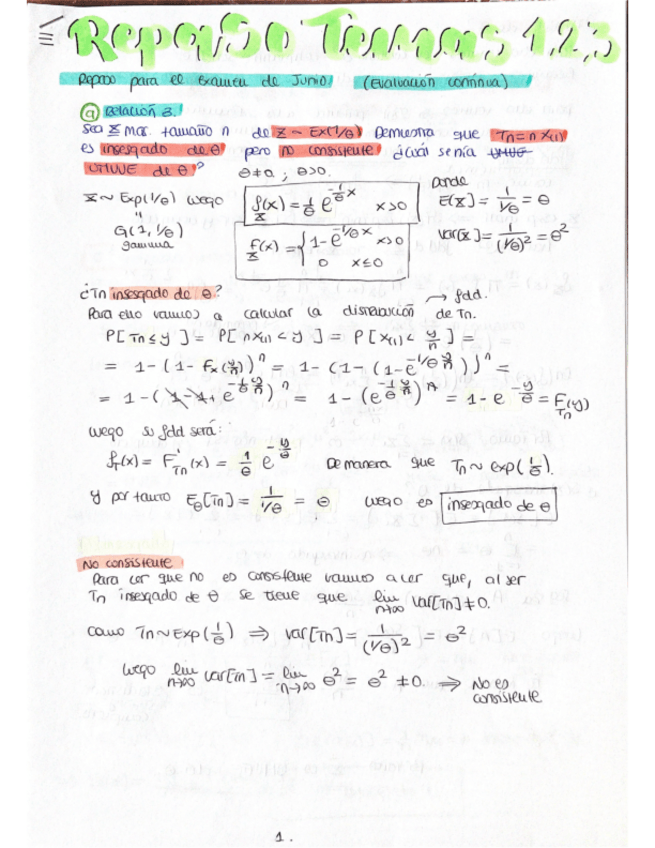 Repaso Temas 1,2,3
Repaso para el examen de Junio (Evaluación continua)
a) Relación 3.
Sea X mas. tamaño n de X ~ Ex(1/θ) Demuestra que Tn = n X(1)
es insesgado de θ pero no consistente ¿Cuál sería UMVUE
UMVUE de θ? θ≠0 ; θ>0.
X ~ Exp(1/θ) luego f_X(x) = 1/θ e^{-1/θ x} x>0 Donde
" E[X] = 1/(1/θ) = θ
G(1, 1/θ) F_X(x) = { 1 - e^{-1/θ x} x>0 Var[X] = 1/(1/θ)² = θ²
gamma 0 x≤0
¿Tn insesgado de θ?
→ fdd.
Para ello vamos a calcular la distribución de Tn.
P[Tn ≤ y] = P[n X(1) < y] = P[X(1) < y/n] =
= 1 - (1 - F_X(y/n))^n = 1 - (1 - (1 - e^{-1/θ y/n}))^n =
= 1 - (1 - 1 + e^{-1/θ y/n})^n = 1 - (e^{-1/θ y/n})^n = 1 - e^{-y/θ} = F_Tn(y)
luego su fdd será:
f_T(x) = F'_Tn(x) = 1/θ e^{-y/θ} De manera que Tn ~ exp(1/θ).
y por tanto E_θ[Tn] = 1/(1/θ) = θ luego es insesgado de θ
No consistente
Para ver que no es consistente vamos a ver que, al ser
Tn insesgado de θ se tiene que lim n→∞ Var[Tn] ≠ 0.
como Tn ~ Exp(1/θ) ⟹ Var[Tn] = 1/(1/θ)² = θ²
luego lim n→∞ Var[Tn] = lim n→∞ θ² = θ² ≠ 0. ⟹ No es
consistente
1.